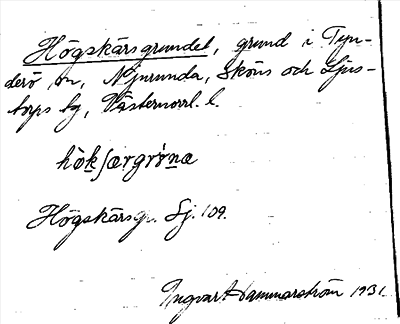 Högskärsgrundet, grund i Tyn-
derö sn, Njurunda, Sköns och Ljus-
torps tg, Västernorrl. l.
Högskärsgr. Sj. 109.
Ingvar Hammarström 1931